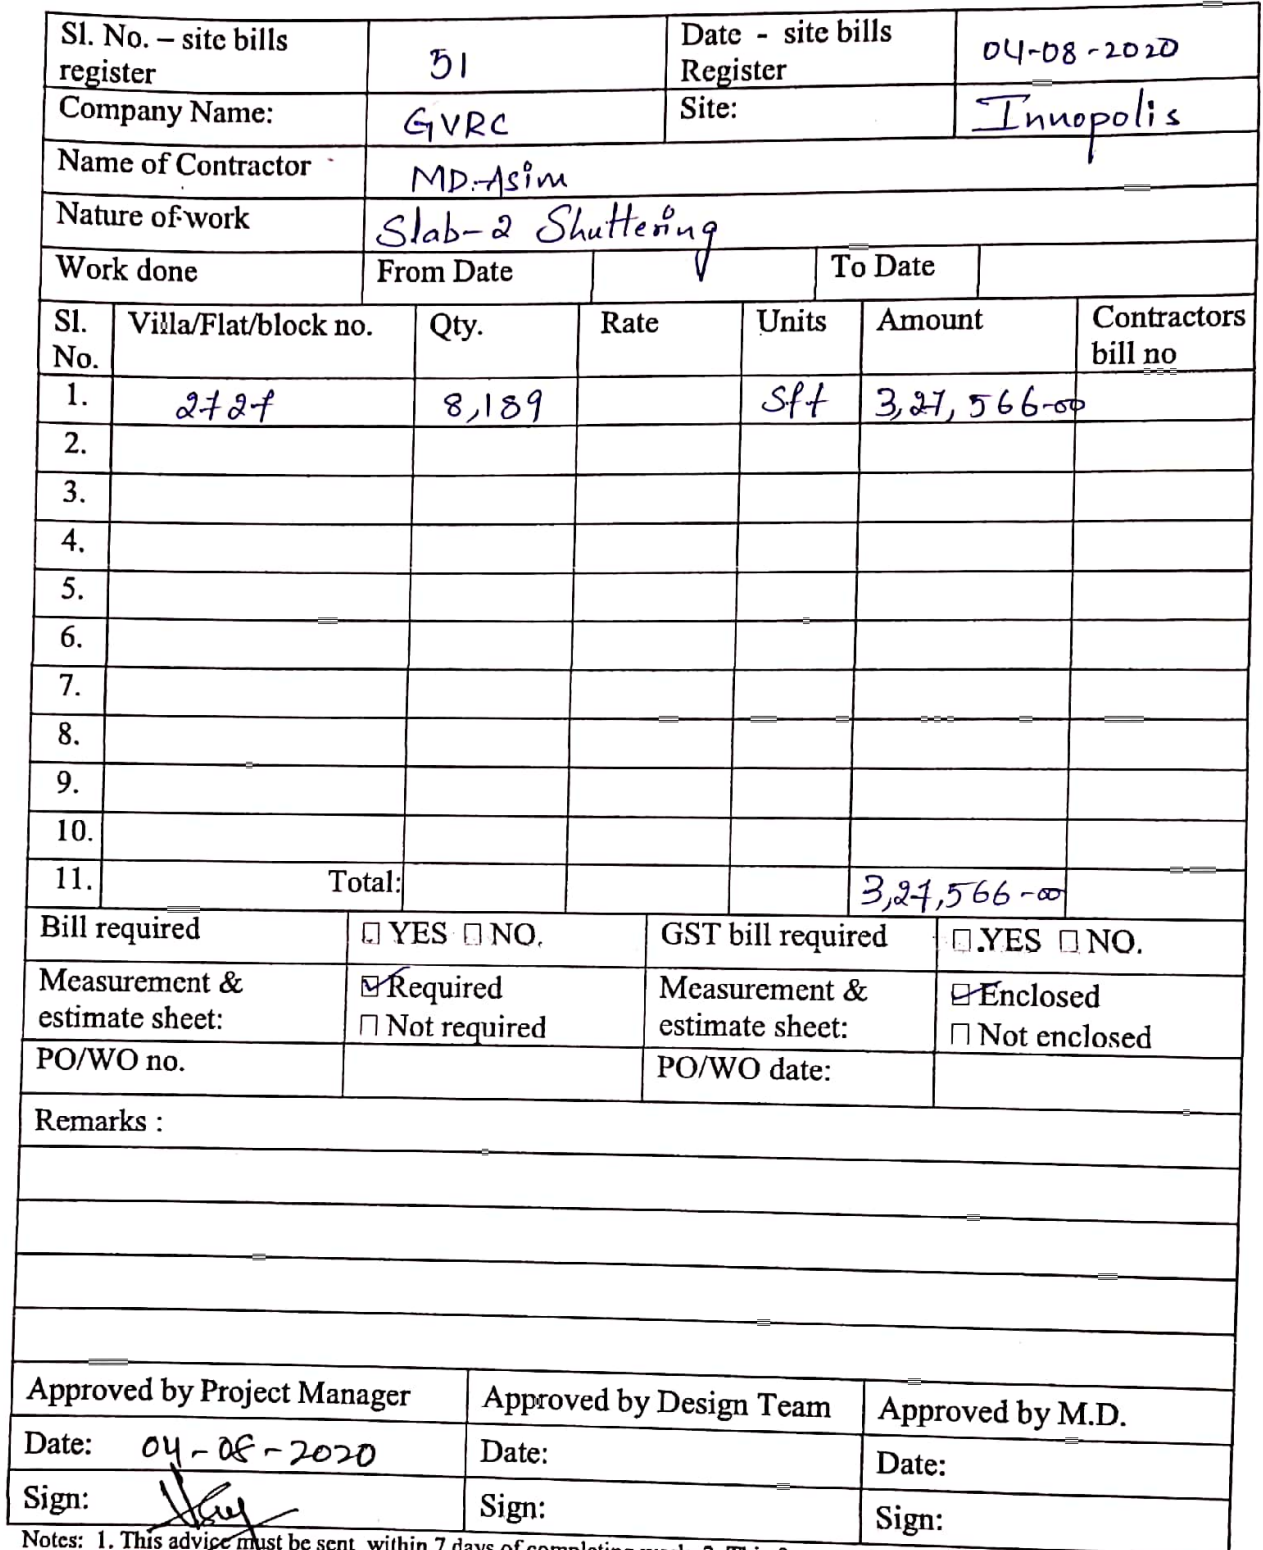 Sl. No. – site bills register 51 Date - site bills Register 04-08-2020
Company Name: GVRC Site: Innopolis
Name of Contractor MD.Asim
Nature of work Slab-2 Shuttering
Work done From Date To Date
Sl. No. Villa/Flat/block no. Qty. Rate Units Amount Contractors bill no
1. 2727 8,189 Sft 3,27,566-00
2.
3.
4.
5.
6.
7.
8.
9.
10.
11. Total: 3,27,566-00
Bill required ☐ YES ☐ NO. GST bill required ☐ YES ☐ NO.
Measurement & estimate sheet: ☑ Required Measurement & estimate sheet: ☑ Enclosed
☐ Not required ☐ Not enclosed
PO/WO no. PO/WO date:
Remarks :
Approved by Project Manager Approved by Design Team Approved by M.D.
Date: 04-08-2020 Date: Date:
Sign: Sign: Sign:
Notes: 1. This advice must be sent within 7 days of completing